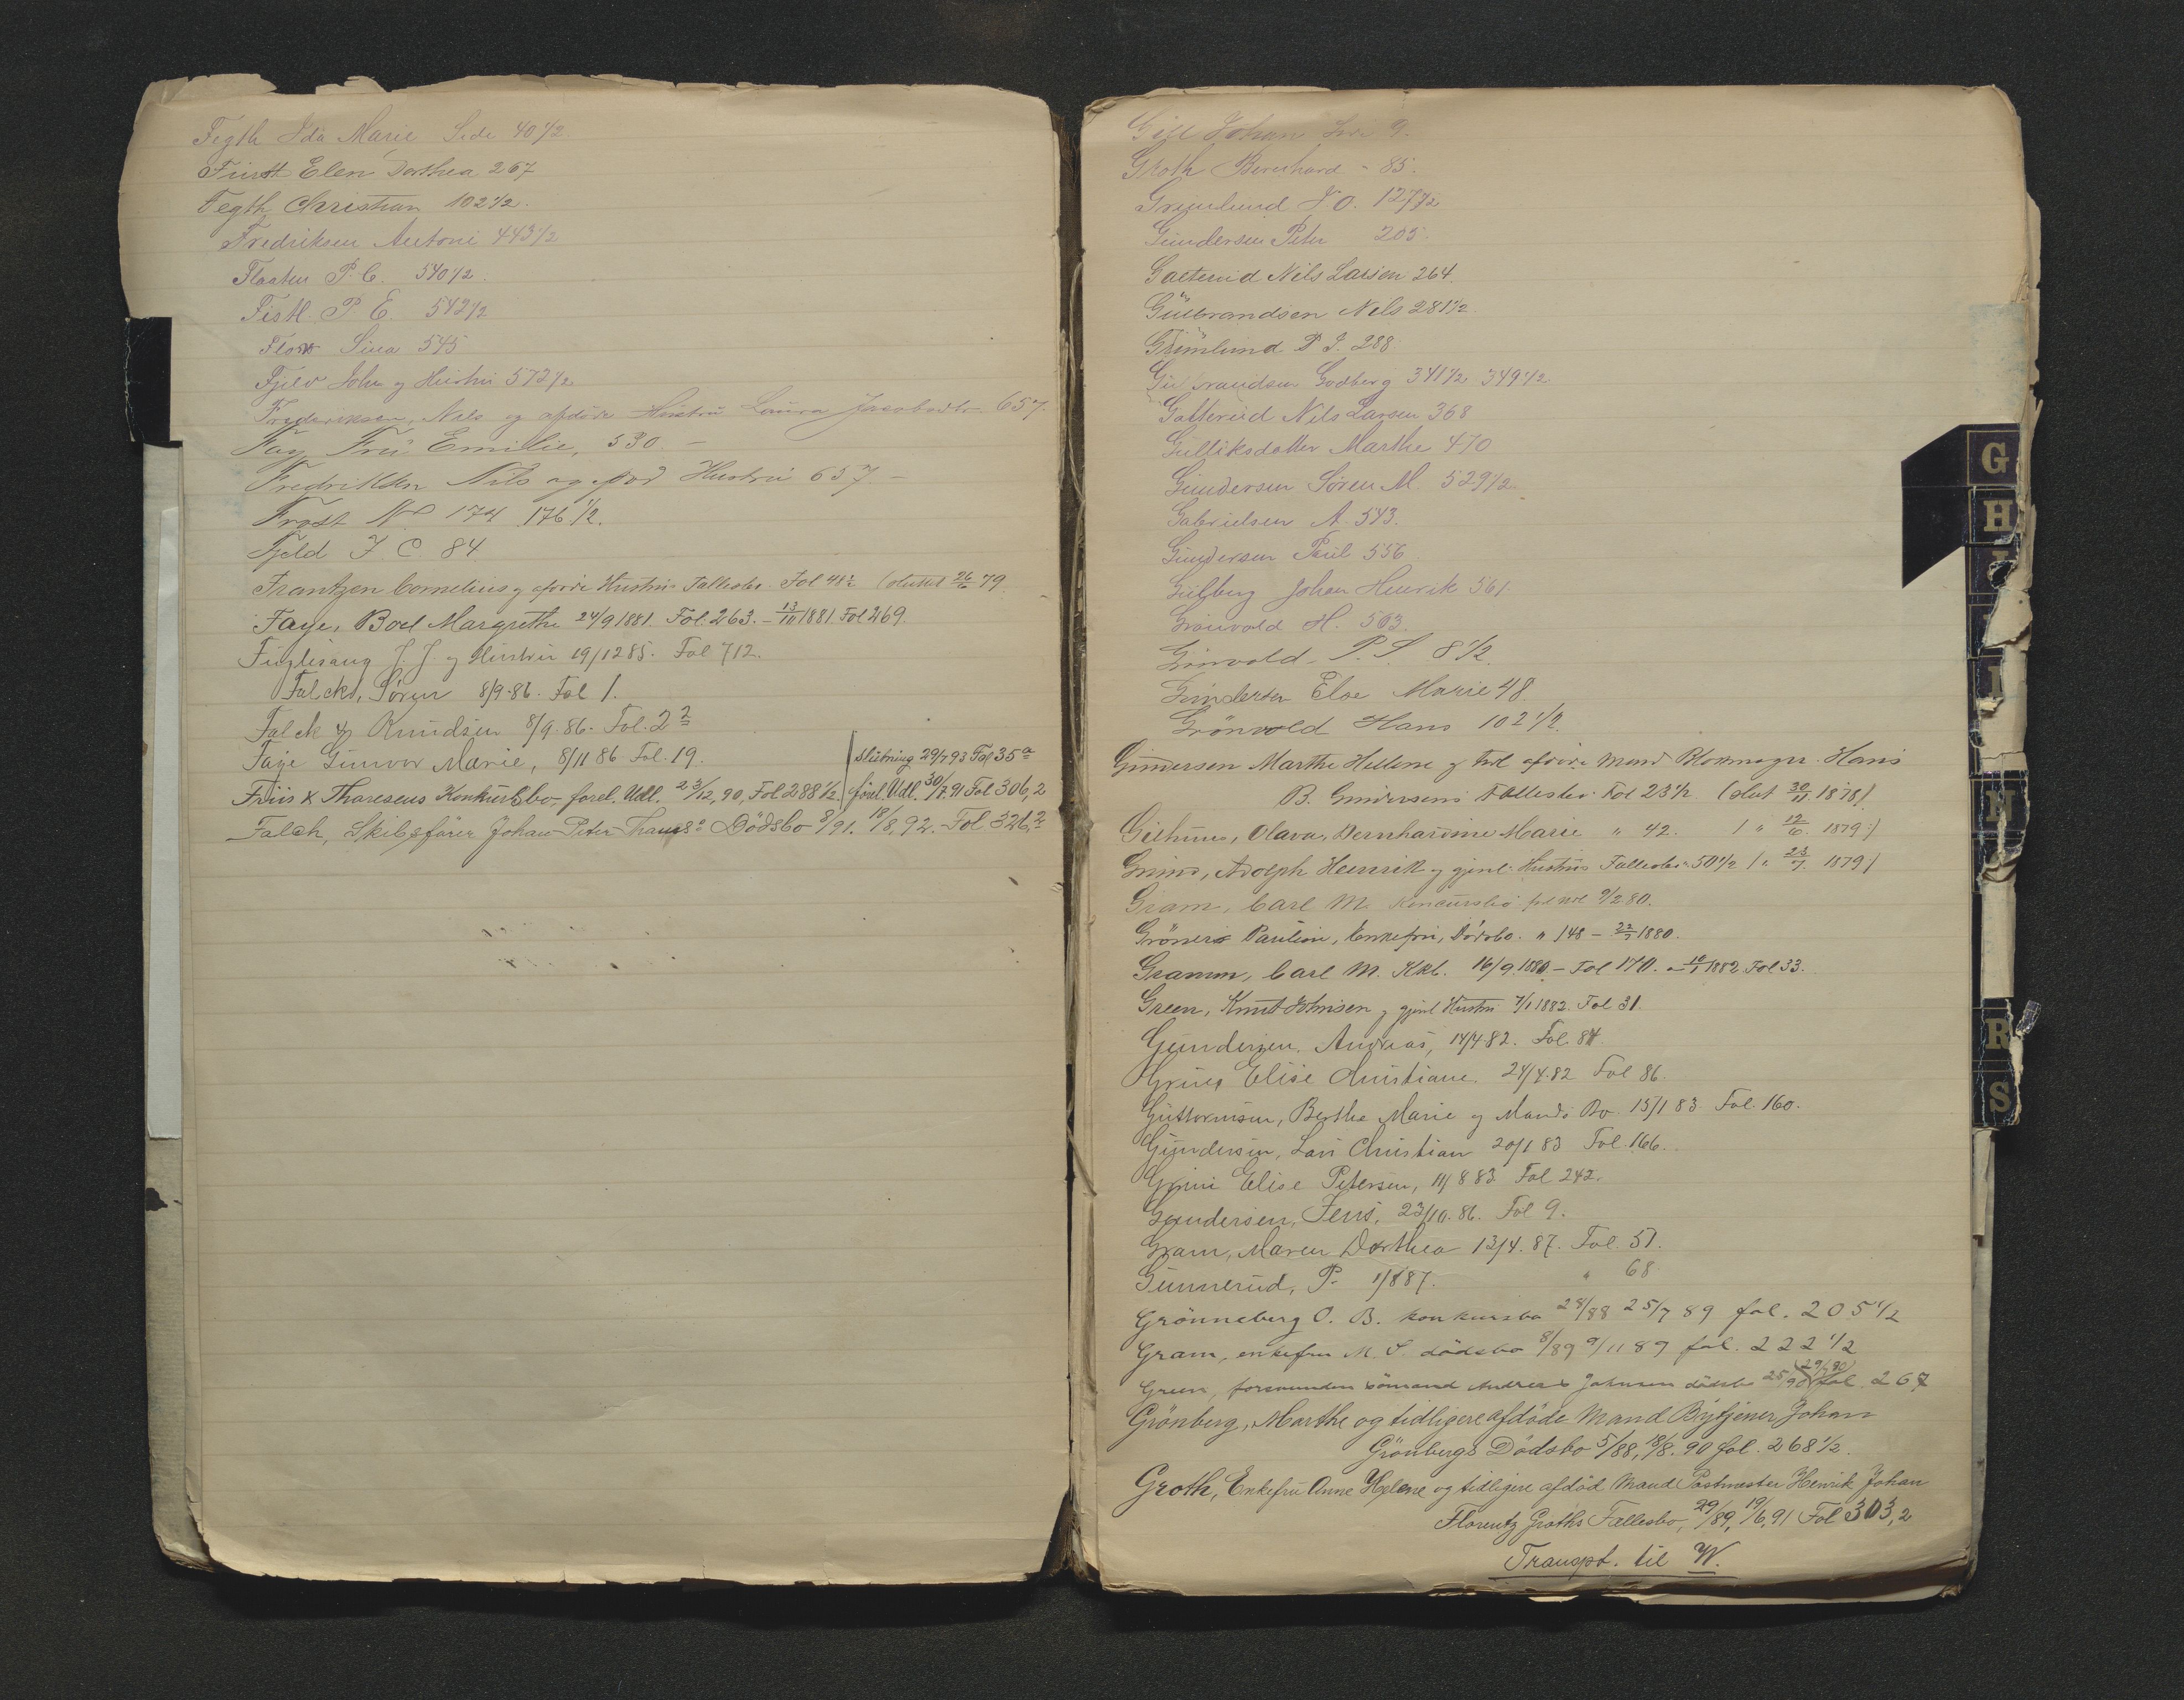 Fegth Ida Marie Side 40 1/2
Fürst Elen Dorthea 267
Fegth Christian 102 1/2.
Fredriksen Antoni 443 1/2
Flaaten P. C. 540 1/2.
Fistl. P. E. 542 1/2
Flor Sina 545
Fjeld John og Hustru 572 1/2
Frederiksen, Nils og afdöde Hustru Laura Jacobsdtr. 657.
Fay Frü Emilie, 530. –
Fredriksen Nils og Hustrü 657 –
Frost N P 174 176 1/2.
Fjeld J. C. 84
Frantzen Cornelius og afdöde Hustrus Fallesbo. Fol 48 1/2 (sluttet 26/6 79
Faye, Boel Margrethe 24/9 1881. Fol. 263. – 13/10 1881. Fol 269.
Fuglesang J. J. og Hustru 19/12 85. Fol 712.
Falck, Sören 8/9-86. Fol 1.
Falck & Knudsen 8/9-86. Fol. 2 2
Faye Gunvor Marie, 8/11 86 Fol. 19.
Slutning 29/7 93 Fol 35 a
Friis & Thoresens Konkürsbo, forel. Udl. 23/12, 90, Fol 288 1/2. forel. Udl. 30/7. 91 Fol 306,2
Falch, Skibsförer Johan Peter Dödsbo 8/91. 18/8, 92. Fol 326,2
Gill Johan Side 9.
Groth Bernhard - 85.
Grönlund J O. 127 1/2
Gundersen Peter 205.
Galterud Nils Larsen 264.
Gülbrandsen Nels 281 1/2
Grönlund P I. 288
Gulbrandsen Godberg 341 1/2 349 1/2
Galterud Nils Larsen 368
Gulliksdatter Marthe 470
Gundersen Sören M. 529 1/2.
Gabrielsen A. 543.
Gundersen Paul 556
Gulberg Johan Henrik 561
Grönvold H. 563.
Grönvold P. S. 8 1/2.
Gundersen Else Marie 48
Grönvold Hans 102 1/2.
Gundersen Marthe Helene og tidl afdöde Mand Blokmager Hans
B. Gundersens Fallesbo. Fol 23 1/2 (slut 30/11 1878)
Giehuus, Olava, Bernhardine Marie " 42. ( " 12/6. 1879)
Grund, Adolph Henrik og gjenl. Hustrus Fallesbo " 50 1/2 ( " 23/7. 1879)
Gram, Carl M. Koncursbo 9/2 80.
Gröner Pauline, Enkefru, Dödsbo. " 148 – 22/3 1880.
Gramm, Carl M. Kkb. 16/9. 1880 – Fol 170. – 10/1 1882. Fol 33.
Green, Knut Johnsen og gjenl Hustru 7/1 1882. Fol 31.
Gundersen, Andreas, 14/4 82. Fol. 84.
Elise Christiane. 24/4. 82 Fol 86.
Guttormsen, Berthe Marie og Mands Bo. 15/1 83. Fol. 160.
Gundersen, Lars Christian 20/1 83 Fol. 166.
Elise Petersen, 11/8 83. Fol 242.
Gundersen, Jens, 23/10. 86. Fol 9.
Gram, Maren Dorthea 13/4. 87. Fol. 51.
Gunnerud, P. 1/8 87. " 68
Grönneberg O. B. konkursbo 28/88 25/7 89 fol. 205 1/2
Gram, enkefru M. S. dödsbo 8/89 9/11 89 fol. 222 1/2
Green, forsvunden sömand Andreas Johnsen dödsbo 25/90 (29/7 90) fol. 267
Grönberg, Marthe og tidligere afdöde Mand Bytjener Johan
Grönbergs Dödsbo 5/88, 18/8. 90 fol. 268 1/2.
Groth, Enkefrü Anne Helene og tidligere afdöd Mand Postmester Henrik Johan
Florentz Groths Fallesbo, 29/89, 19/6, 91 Fol 303,2
Transpt. til W.
G
H
I
N
R
S